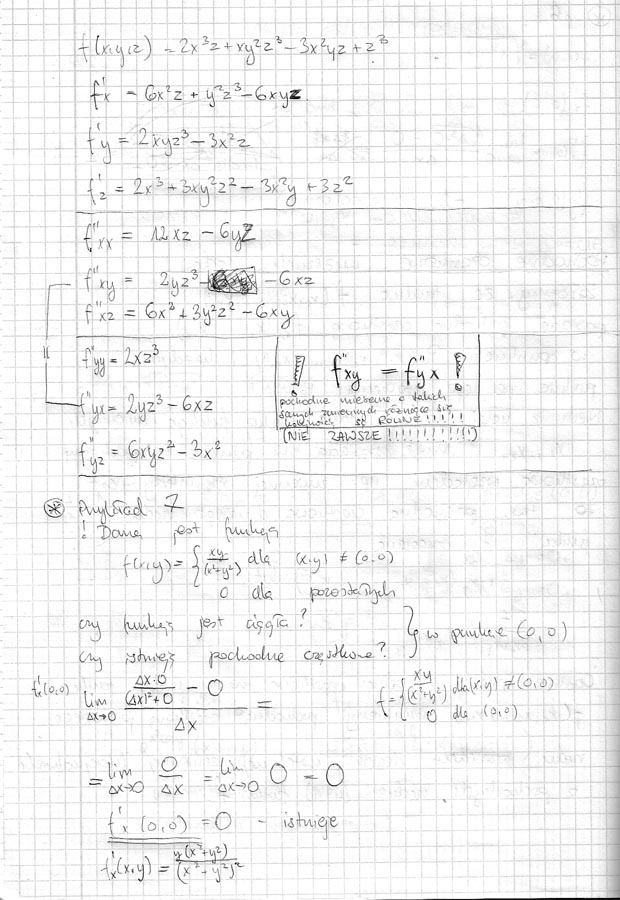 f(x,y,z) = 2x³z + xy²z³ − 3x²yz + z³
f'x = 6x²z + y²z³ − 6xyz
f'y = 2xyz³ − 3x²z
f'z = 2x³ + 3xy²z² − 3x²y + 3z²
f''xx = 12xz − 6yz
f''xy = 2yz³ − 6xz
f''xz = 6x² + 3y²z² − 6xy
f''yy = 2xz³
f''yx = 2yz³ − 6xz
f''yz = 6xyz² − 3x²
=
! f''xy = f''yx !
pochodne mieszane o takich
samych zmiennych różniące się
kolejnością są RÓWNE!!!!!
(NIE ZAWSZE !!!!!!!!!!(!)
* Przykład 7
! Dana jest funkcja
f(x,y) = { xy/(x²+y²) dla (x,y) ≠ (0,0)
0 dla pozostałych
czy funkcja jest ciągła?
czy istnieją pochodne cząstkowe? } w punkcie (0,0)
f'x(0,0) lim Δx→0 (Δx·0/((Δx)²+0) − 0)/Δx =
f = { xy/(x²+y²) dla (x,y) ≠ (0,0)
0 dla (0,0)
= lim Δx→0 0/Δx = lim Δx→0 0 = 0
f'x(0,0) = 0 - istnieje
f'x(x,y) = y(x²+y²)/(x²+y²)²